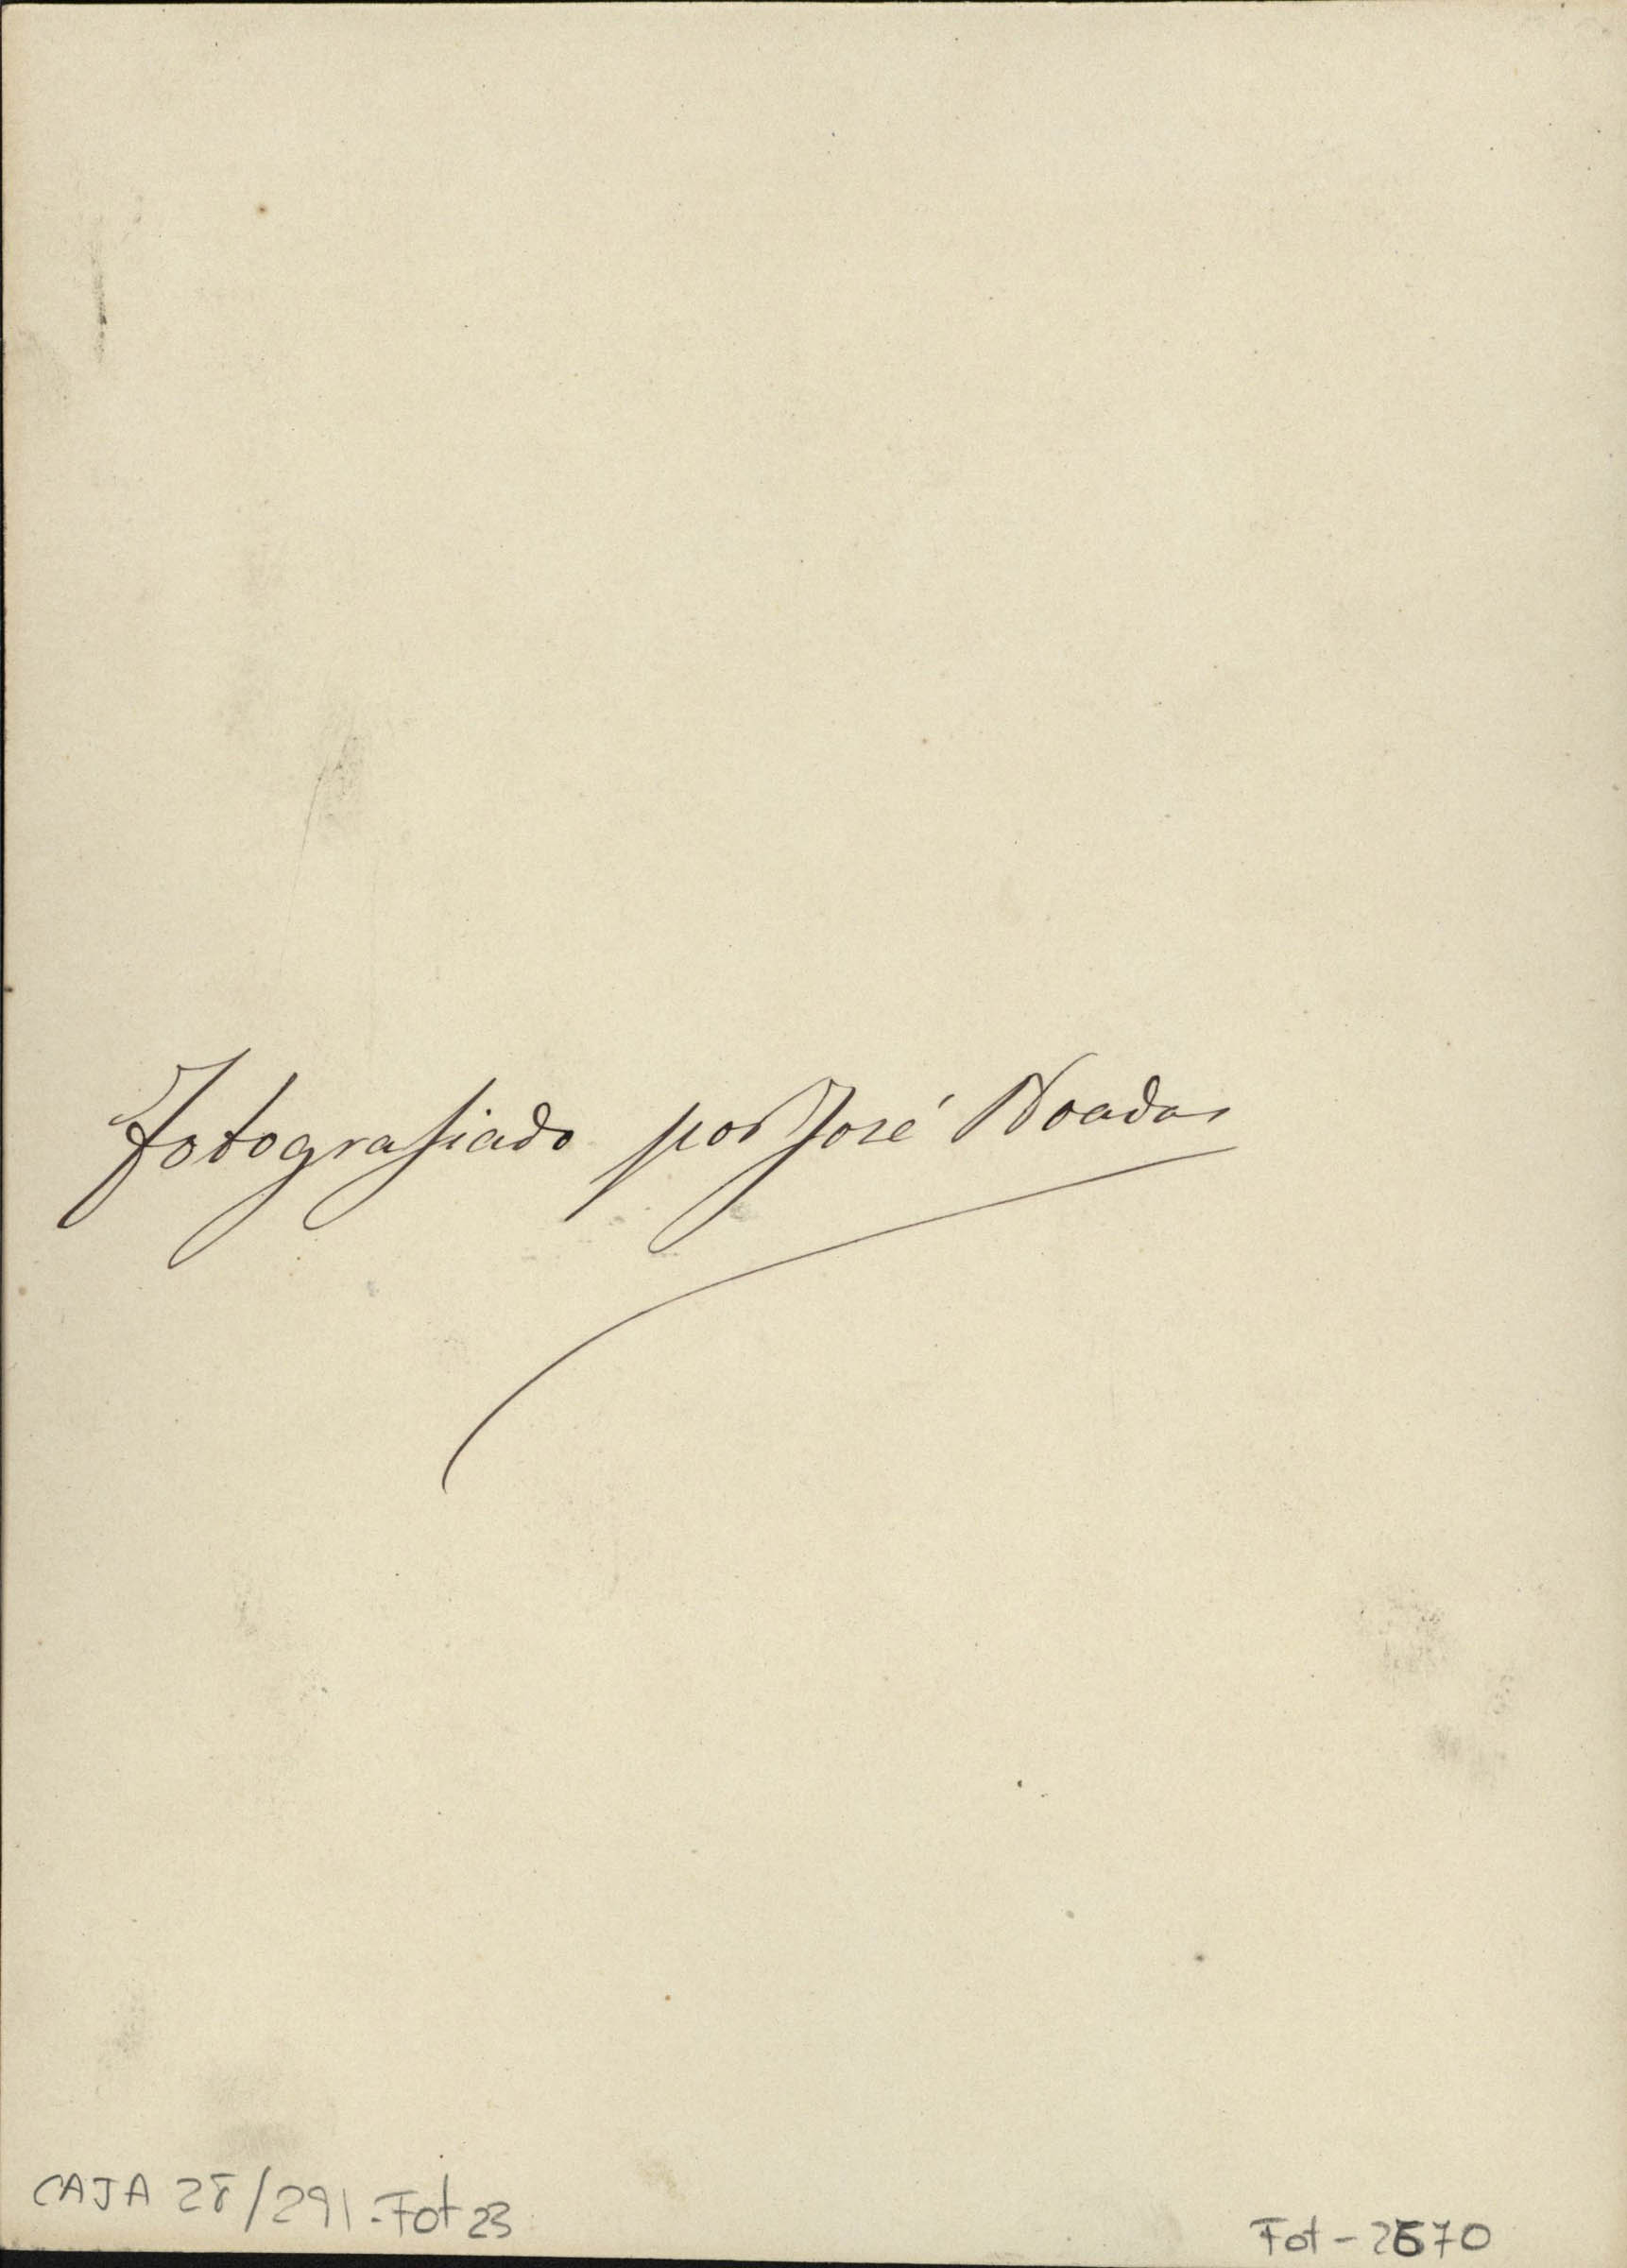 Fotografiado por José Noadas
CAJA 28/291-Fot 23
Fot-2670